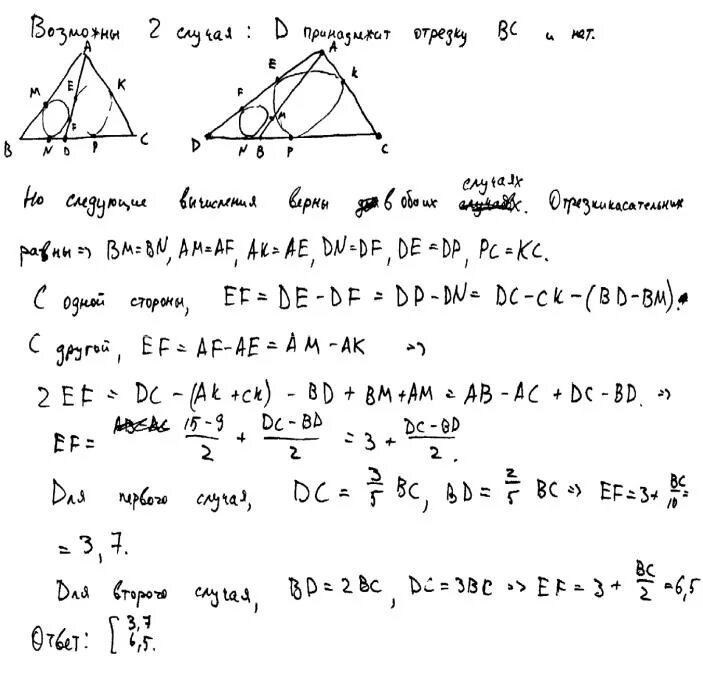 Возможны 2 случая: D принадлежит отрезку BC и нет.
A
M
E
K
F
B
N
D
P
C
A
E
K
F
M
D
N
B
P
C
Но следующие вычисления верны в обоих случаях. Отрезки касательных
равны => BM=BN, AM=AF, AK=AE, DN=DF, DE=DP, PC=KC.
С одной стороны, EF = DE-DF = DP-DN = DC-CK-(BD-BM).
С другой, EF = AF-AE = AM-AK =>
2EF = DC-(AK+CK)-BD+BM+AM = AB-AC+DC-BD. =>
EF = (15-9)/2 + (DC-BD)/2 = 3 + (DC-BD)/2.
Для первого случая, DC = 3/5 BC, BD = 2/5 BC => EF = 3 + BC/10 =
= 3,7.
Для второго случая, BD = 2BC, DC = 3BC => EF = 3 + BC/2 = 6,5
Ответ: [3,7
6,5.